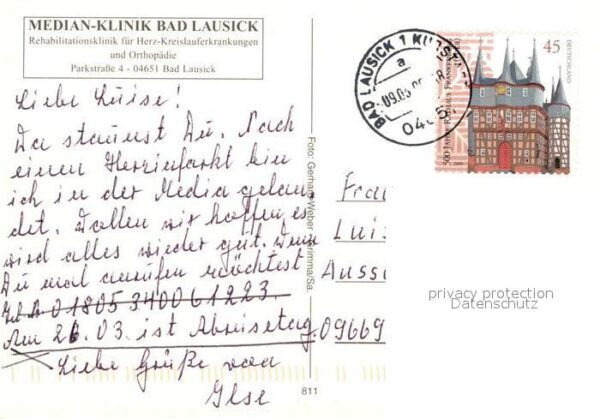 MEDIAN-KLINIK BAD LAUSICK
Rehabilitationsklinik für Herz-Kreislauferkrankungen
und Orthopädie
Parkstraße 4 - 04651 Bad Lausick
Liebe Luise!
Da staunst Du. Nach
einen Herzinfarkt bin
ich in der Media gelan
det. Wollen wir hoffen, es
wird alles wieder gut. Wenn
Du mal anrufen möchtest
Tel. 01805 3400 61223.
Am 26.03. ist Abreisetag.
Liebe Grüße von
Ilse
Foto: Gerhard Weber Grimma/Sa.
811
BAD LAUSICK 1
a
09.03
500 Jahre Rathaus Frankenberg
45
DEUTSCHLAND
Frau
Luis
Auss
09669
privacy protection
Datenschutz